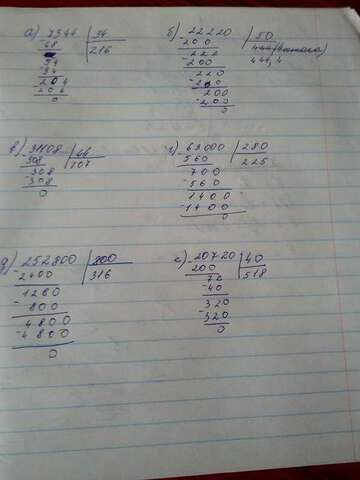 а) 7344 | 34
- 68 216
54
- 34
204
- 204
0
б) 22220 | 50
- 200
222 444,4
- 200
220
- 200
200
- 200
0
в) 31108 | 44
- 308 707
308
- 308
0
г) 63000 | 280
- 560 225
700
- 560
1400
- 1400
0
д) 252800 | 800
- 2400 316
1280
- 800
4800
- 4800
0
е) 20720 | 40
- 200 518
72
- 40
320
- 320
0